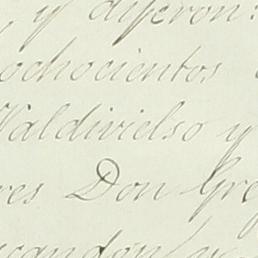 y dijeron:
ochocientos
Valdivielso y
res Don Gre